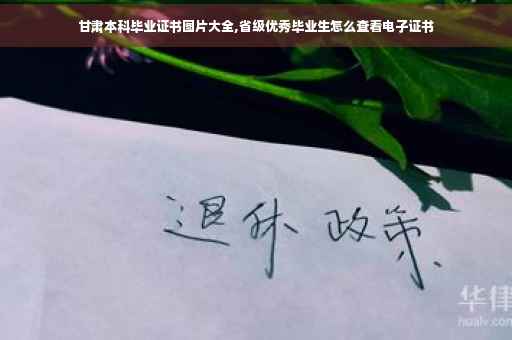 甘肃本科毕业证书图片大全,省级优秀毕业生怎么查看电子证书
退休 政策
华律
hualv.com